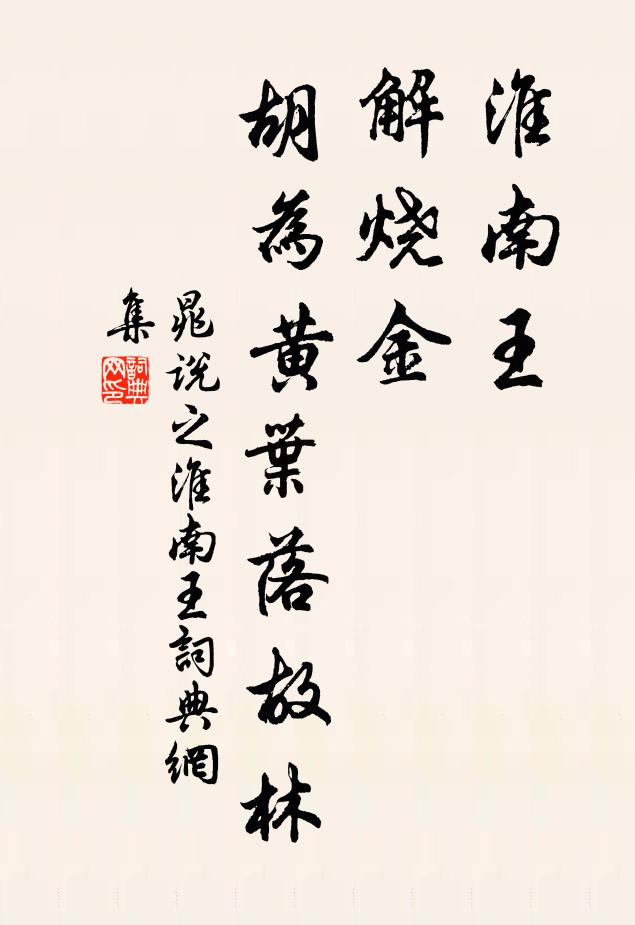 淮南王
解烧金
胡為黃葉落故林
晁說之淮南王詞典網
集
詞典
网印